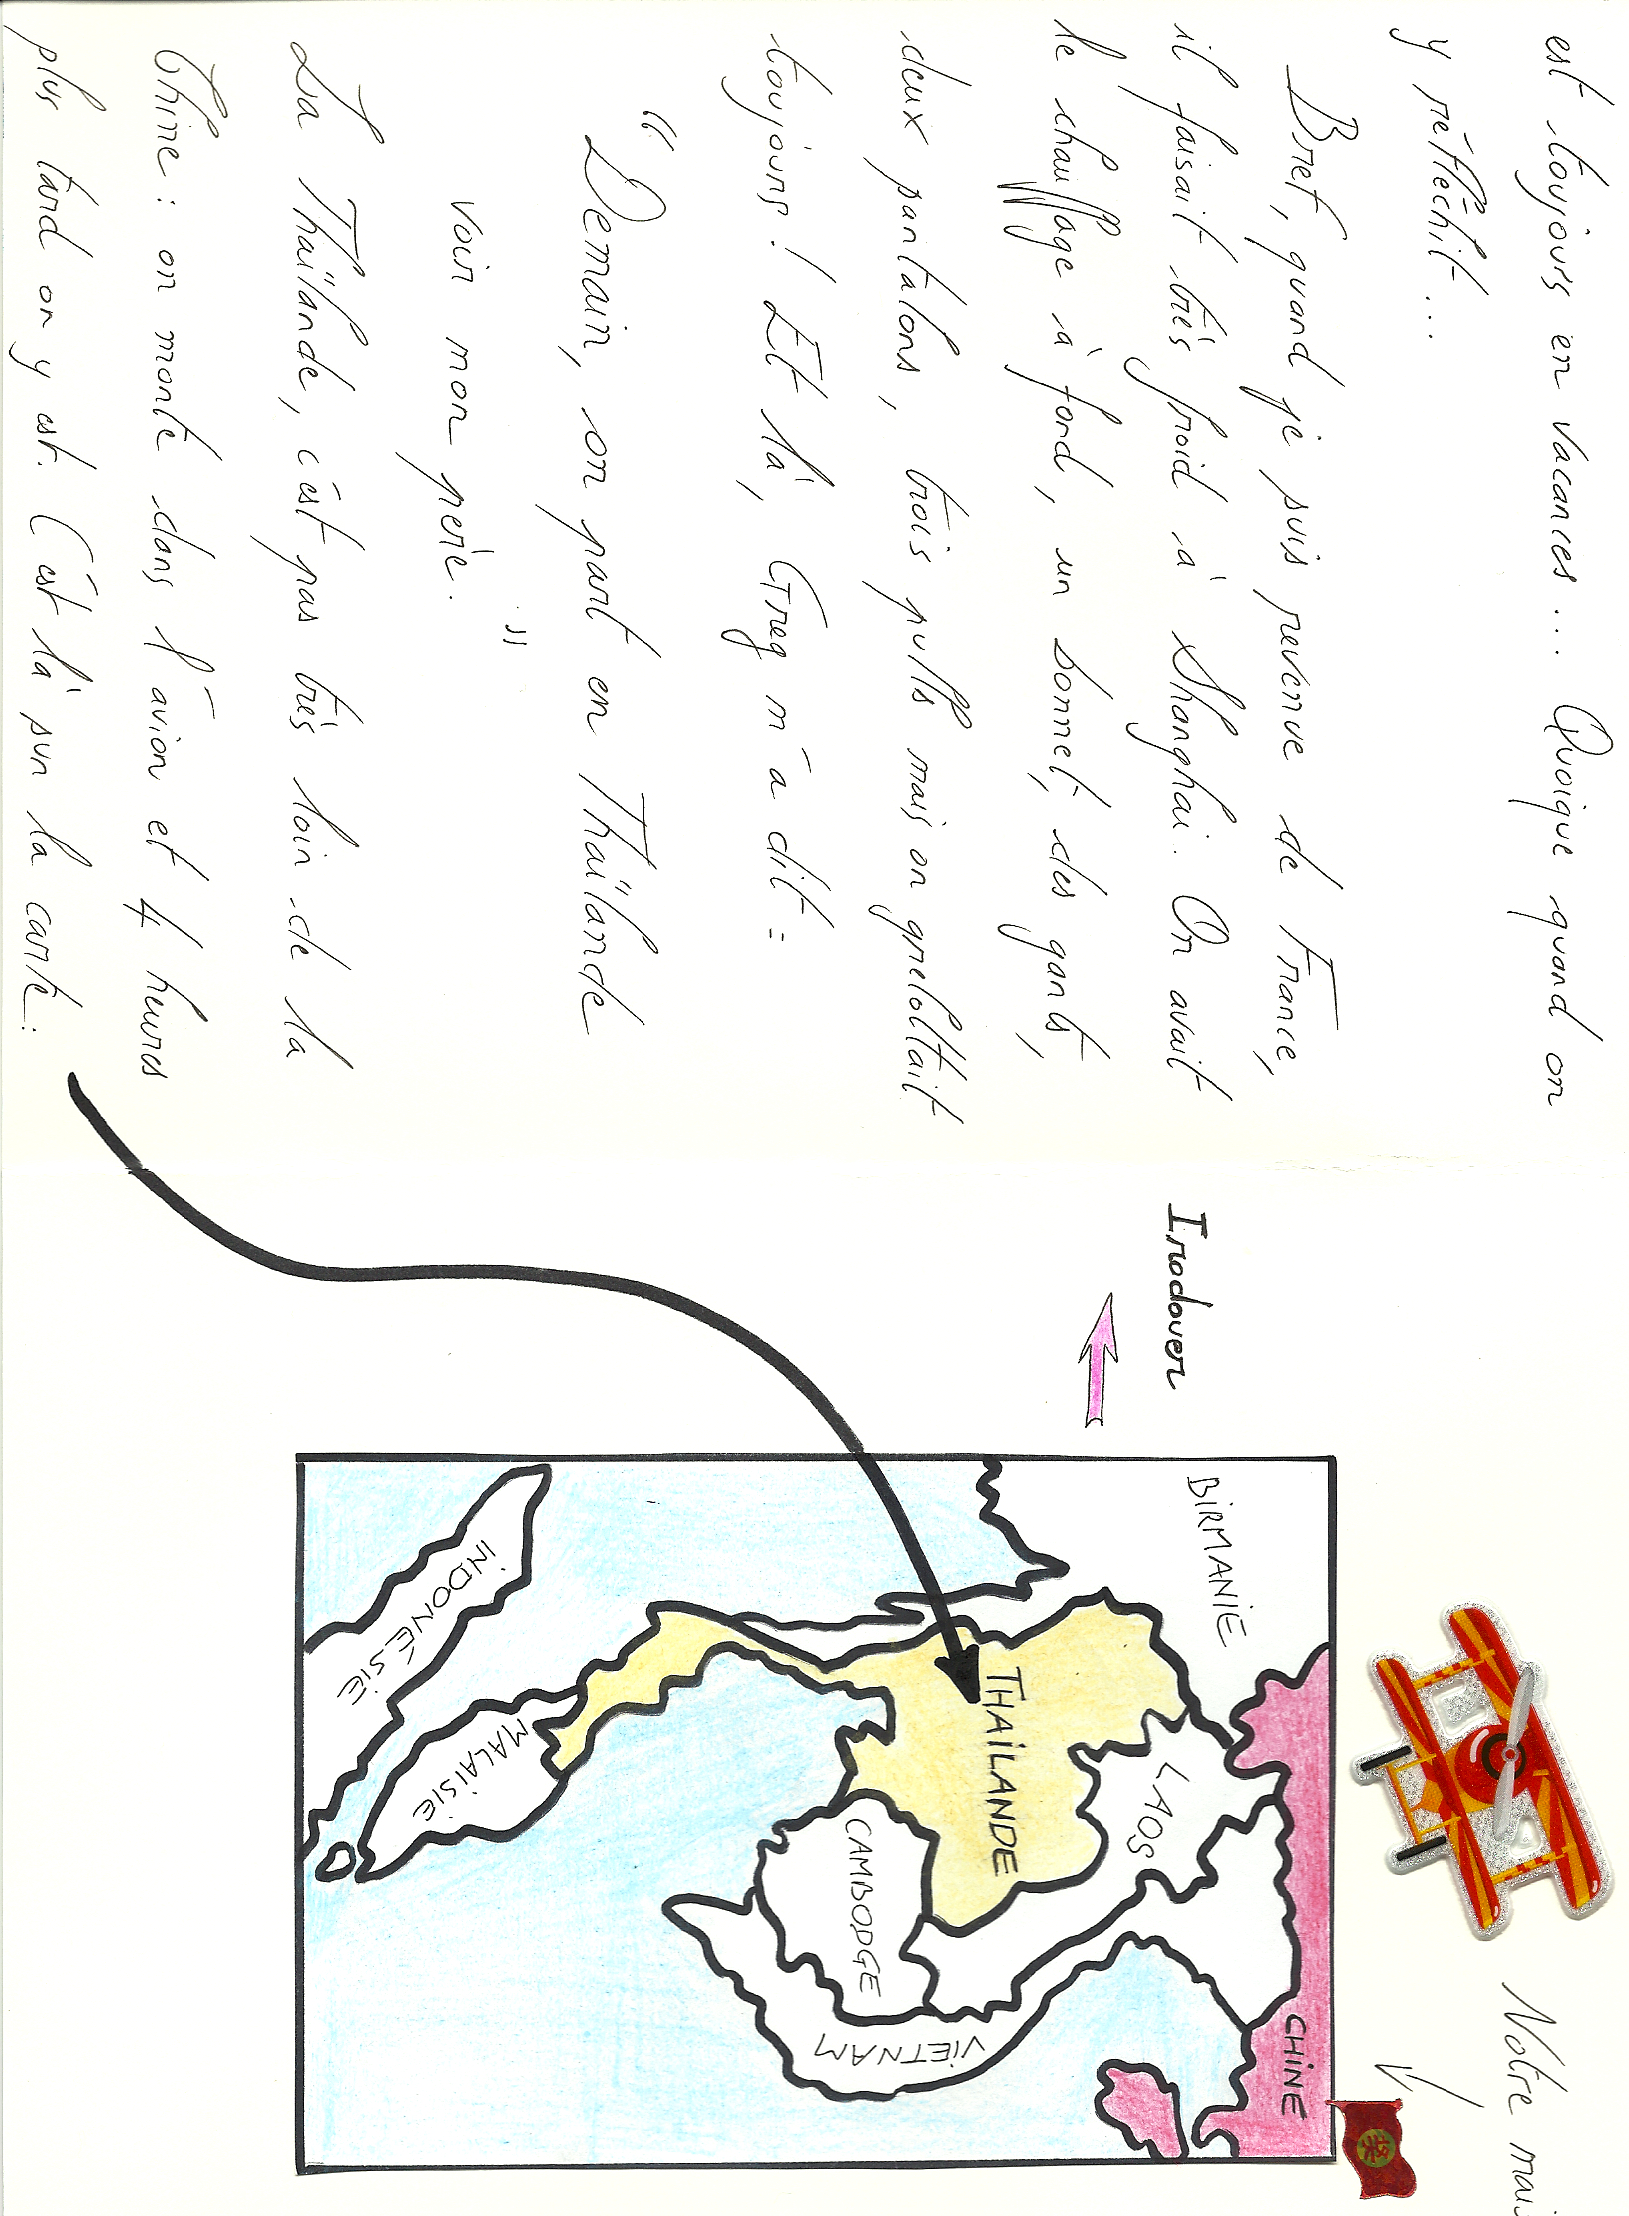 est toujours en vacances... Quoique quand on
y réfléchit...
Bref, quand je suis revenue de France,
il faisait très froid à Shanghai. On avait
le chauffage à fond, un bonnet, des gants,
deux pantalons, trois pulls mais on grelottait
toujours ! Et là, Greg m'a dit :
" Demain, on part en Thaïlande
voir mon père. "
La Thaïlande, c'est pas très loin de la
Chine : on monte dans l'avion et 4 heures
plus tard on y est. C'est là sur la carte :
Notre mais
Irodouer
CHINE
BIRMANIE
LAOS
THAILANDE
VIETNAM
CAMBODGE
MALAISIE
INDONÉSIE